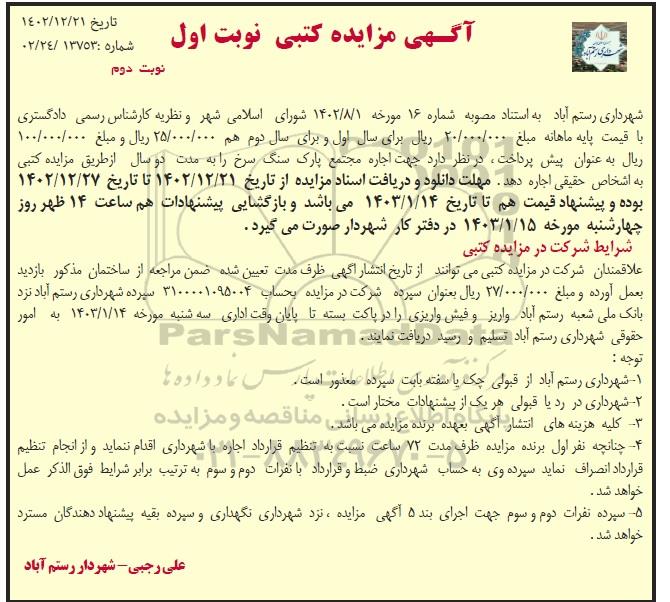 تاریخ ۱۴۰۲/۱۲/۲۱
آگـهی مزایده کتبی نوبت اول
شماره :۱۳۷۵۳ /۰۲/۲۴
نوبت دوم
شهرداری رستم آباد به استناد مصوبه شماره ۱۶ مورخه ۱۴۰۲/۸/۱ شورای اسلامی شهر و نظریه کارشناس رسمی دادگستری
با قیمت پایه ماهانه مبلغ ۲۰/۰۰۰/۰۰۰ ریال برای سال اول و برای سال دوم هم ۲۵/۰۰۰/۰۰۰ ریال و مبلغ ۱۰۰/۰۰۰/۰۰۰
ریال به عنوان پیش پرداخت ، در نظر دارد جهت اجاره مجتمع پارک سنگ سرخ را به مدت دو سال ازطریق مزایده کتبی
به اشخاص حقیقی اجاره دهد . مهلت دانلود و دریافت اسناد مزایده از تاریخ ۱۴۰۲/۱۲/۲۱ تا تاریخ ۱۴۰۲/۱۲/۲۷
بوده و پیشنهاد قیمت هم تا تاریخ ۱۴۰۳/۱/۱۴ می باشد و بازگشایی پیشنهادات هم ساعت ۱۴ ظهر روز
چهارشنبه مورخه ۱۴۰۳/۱/۱۵ در دفتر کار شهردار صورت می گیرد .
شرایط شرکت در مزایده کتبی
علاقمندان شرکت در مزایده کتبی می توانند از تاریخ انتشار اگهی ظرف مدت تعیین شده ضمن مراجعه از ساختمان مذکور بازدید
بعمل آورده و مبلغ ۲۷/۰۰۰/۰۰۰ ریال بعنوان سپرده شرکت در مزایده بحساب ۳۱۰۰۰۰۱۰۹۵۰۰۴ سپرده شهرداری رستم آباد نزد
بانک ملی شعبه رستم آباد واریز و فیش واریزی را در پاکت بسته تا پایان وقت اداری سه شنبه مورخه ۱۴۰۳/۱/۱۴ به امور
حقوقی شهرداری رستم آباد تسلیم و رسید دریافت نمایند .
توجه :
۱-شهرداری رستم آباد از قبولی چک یا سفته بابت سپرده معذور است .
۲-شهرداری در رد یا قبولی هر یک از پیشنهادات مختار است .
۳- کلیه هزینه های انتشار آگهی بعهده برنده مزایده می باشد .
۴- چنانچه نفر اول برنده مزایده ظرف مدت ۷۲ ساعت نسبت به تنظیم قرارداد اجاره با شهرداری اقدام ننماید و از انجام تنظیم
قرارداد انصراف نماید سپرده وی به حساب شهرداری ضبط و قرارداد با نفرات دوم و سوم به ترتیب برابر شرایط فوق الذکر عمل
خواهد شد .
۵- سپرده نفرات دوم و سوم جهت اجرای بند ۵ آگهی مزایده ، نزد شهرداری نگهداری و سپرده بقیه پیشنهاد دهندگان مسترد
خواهد شد .
علی رجبی – شهردار رستم آباد
ParsNamadData
پایگاه اطلاع رسانی مناقصه و مزایده
۰۲۱-۸۸۳۴۹۶۷۰-۵